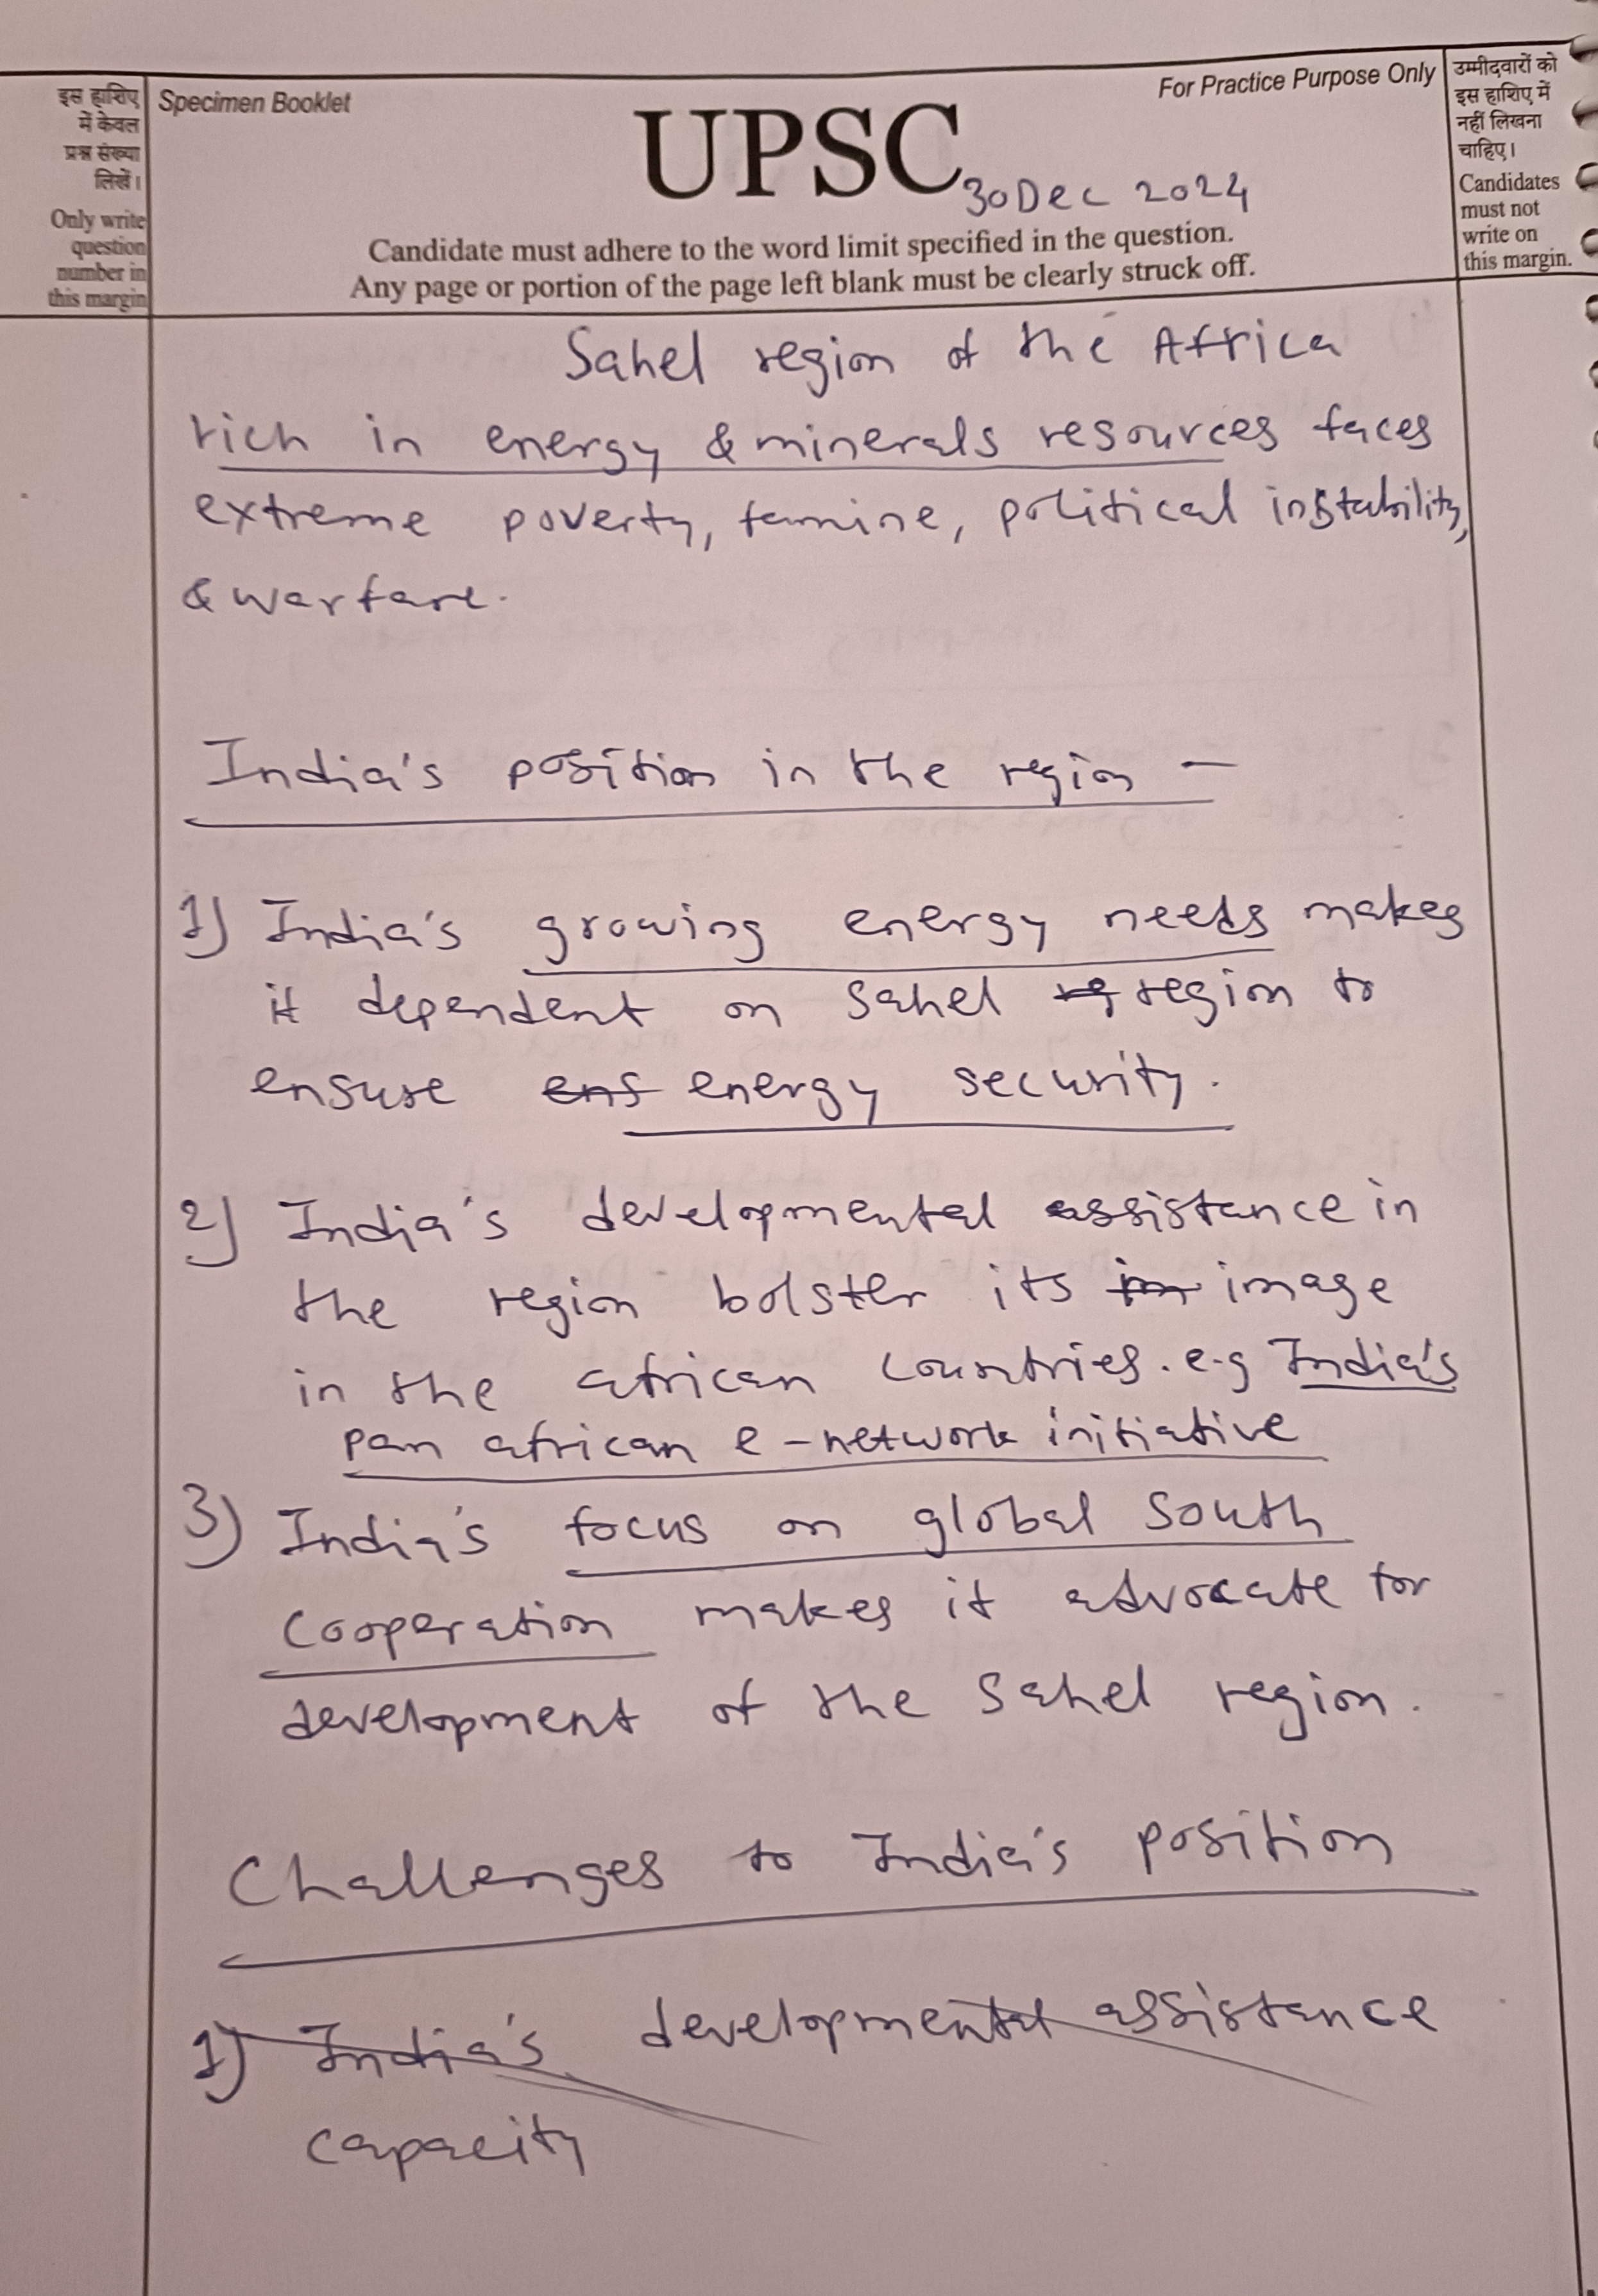 इस हाशिए
में केवल
प्रश्न संख्या
लिखें।
Only write
question
number in
this margin
Specimen Booklet
For Practice Purpose Only
UPSC
30 Dec 2024
Candidate must adhere to the word limit specified in the question.
Any page or portion of the page left blank must be clearly struck off.
उम्मीदवारों को
इस हाशिए में
नहीं लिखना
चाहिए।
Candidates
must not
write on
this margin.
Sahel region of the Africa
rich in energy & minerals resources faces
extreme poverty, famine, political instability,
& warfare.
India's position in the region -
1) India's growing energy needs makes
it dependent on Sahel region to
ensure energy security.
2) India's developmental assistance in
the region bolster its image
in the african countries. e.g India's
pan african e-network initiative
3) India's focus on global south
cooperation makes it advocate for
development of the Sahel region.
Challenges to India's position
1) India's developmental assistance
capacity